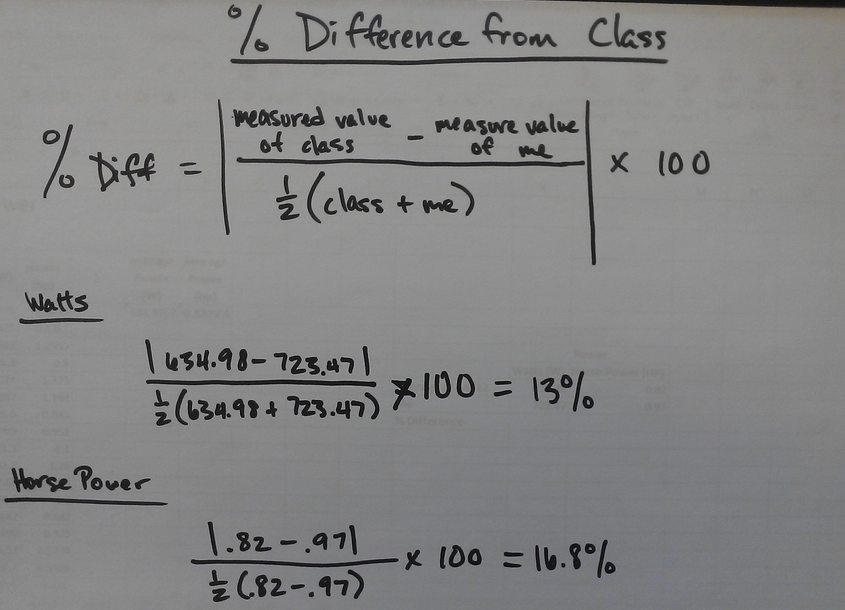 % Difference from Class
% Diff = | measured value of class - measure value of me / ½ (class + me) | x 100
Watts
|634.98 - 723.47| / ½ (634.98 + 723.47) x 100 = 13%
Horse Power
|.82 - .97| / ½ (.82 - .97) x 100 = 16.8%